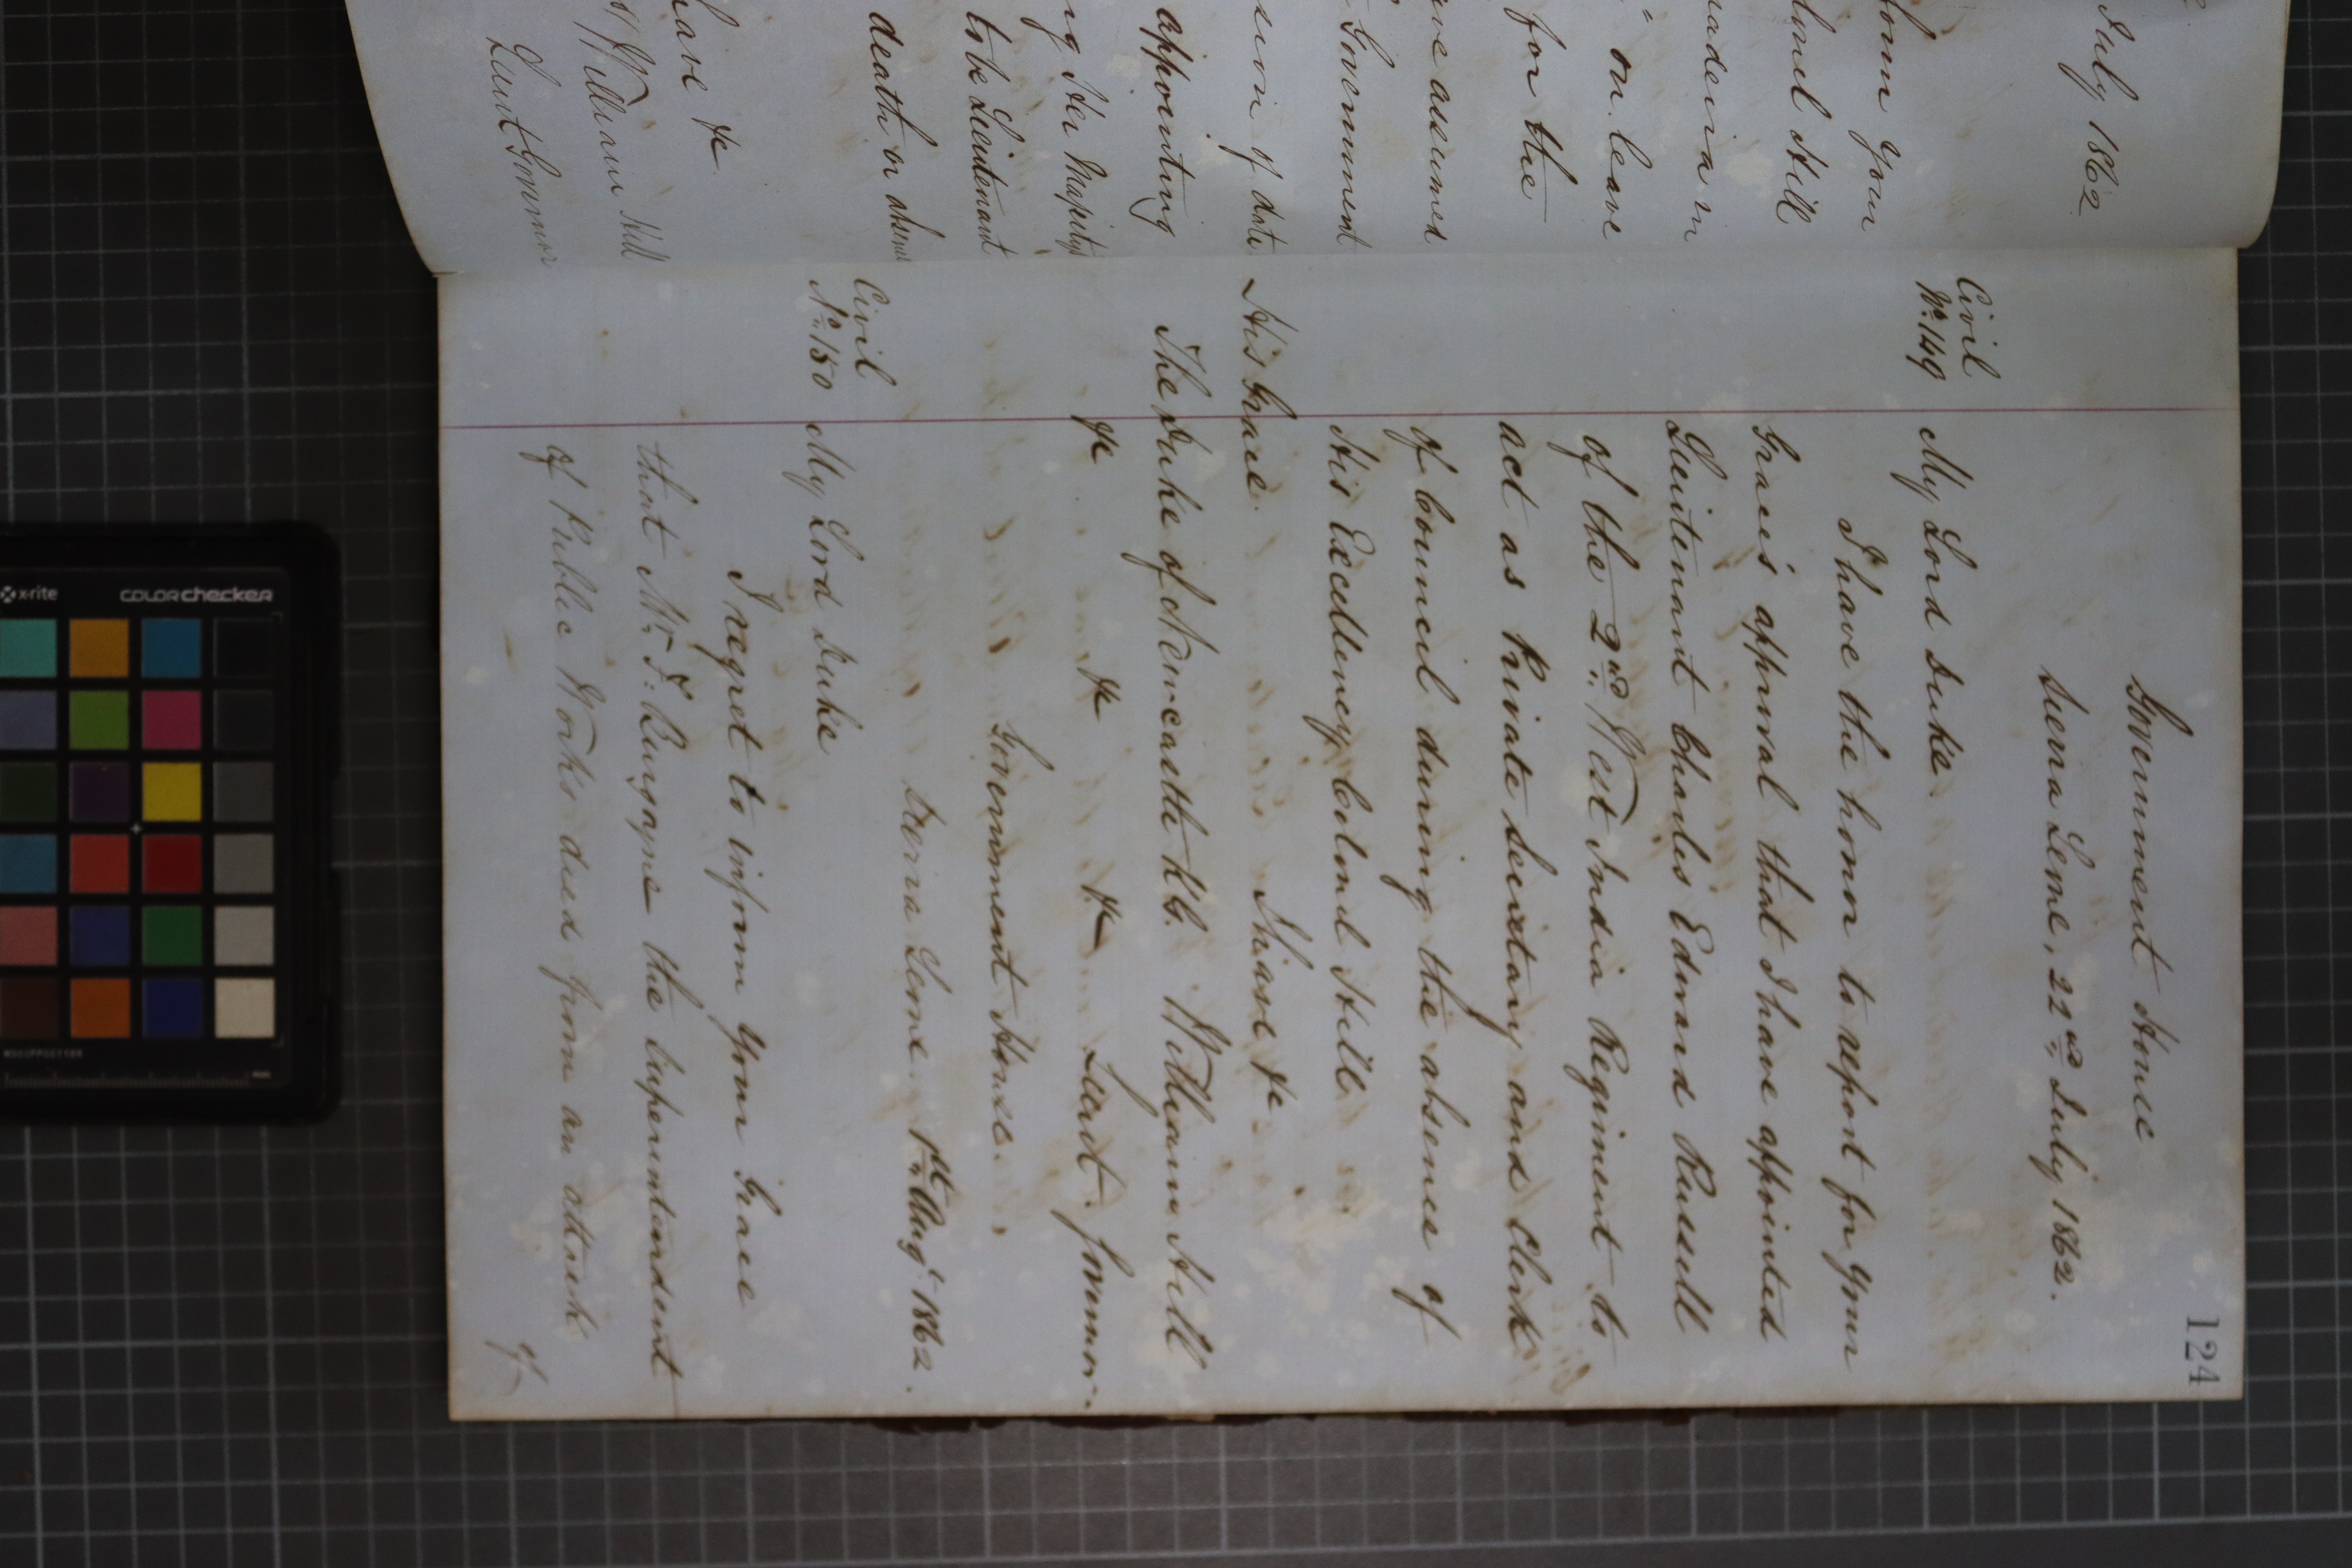 July 1862
form Your
lonel Hill
Madeira in
" on leave
for the
ave assumed
Government
sion of date
appointing
ng Her Majestys
to be Lieutenant
death or absence
have &c
William Hill
Lieut Governor
124
Government House
Sierra Leone, 22nd July 1862.
Civil
No. 149 My Lord Duke.
I have the honor to report for Your
Grace's approval that I have appointed
Lieutenant Charles Edward Russell
of the 2nd West India Regiment to
act as Private Secretary and Clerk
of Council during the absence of
His Excellency Colonel Hill
I have &c
His Grace.
The Duke of Newcastle K.G. William Hill
&c &c &c Lieut. Governor.
Government House.
Sierra Leone 1st Augt 1862.
Civil
No. 150 My Lord Duke
I regret to inform Your Grace
that Mr. F. Burgoyne the Superintendent
of Public Works died from an attack
of
x-rite
colorchecker